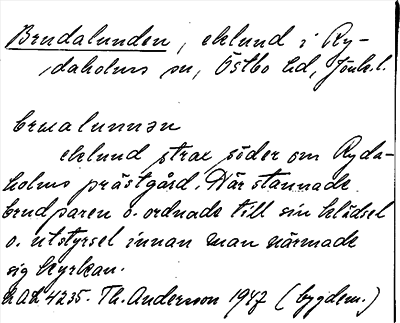 Brudalunden, eklund i Ry-
daholms sn, Östbo hd, Jönk.l.
brualunnən
eklund strax söder om Ryda-
holms prästgård. Här stannade
brudparen o. ordnade till sin klädsel
o. utstyrsel innan man närmade
sig kyrkan.
4235. Th. Andersson 1947 (bygdem.)